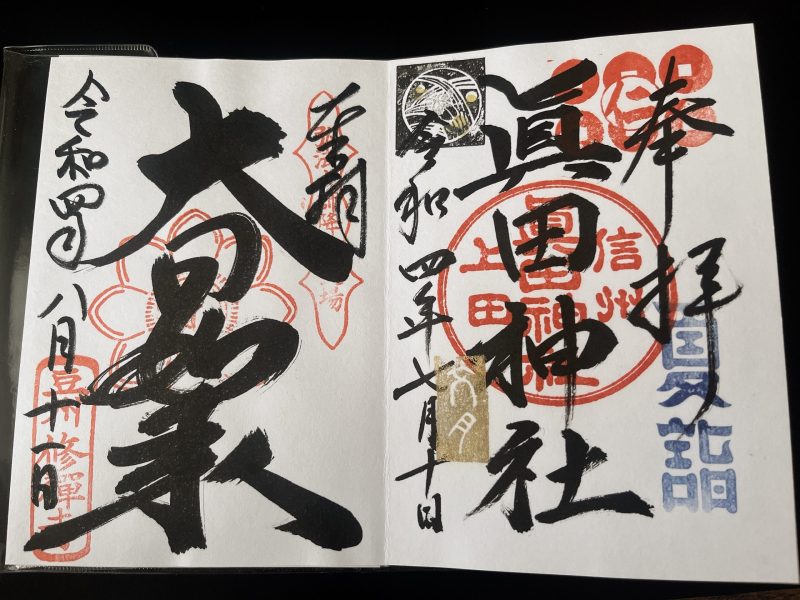 奉拝
夏詣
眞田神社
信州
眞田神社
上田
令和四年七月十日
文月
奉拝
大日如来
令和四年八月十一日
豆州修禅寺